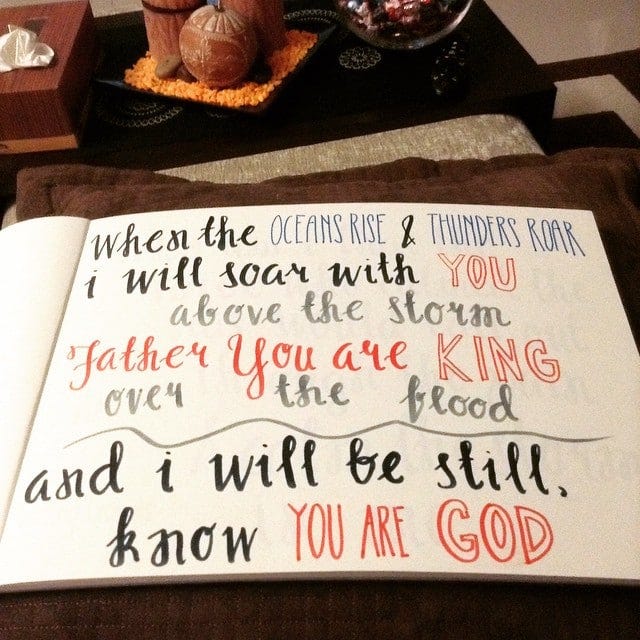 When the OCEANS RISE & THUNDERS ROAR
i will soar with YOU
above the storm
Father You are KING
over the flood
and i will be still,
know YOU ARE GOD